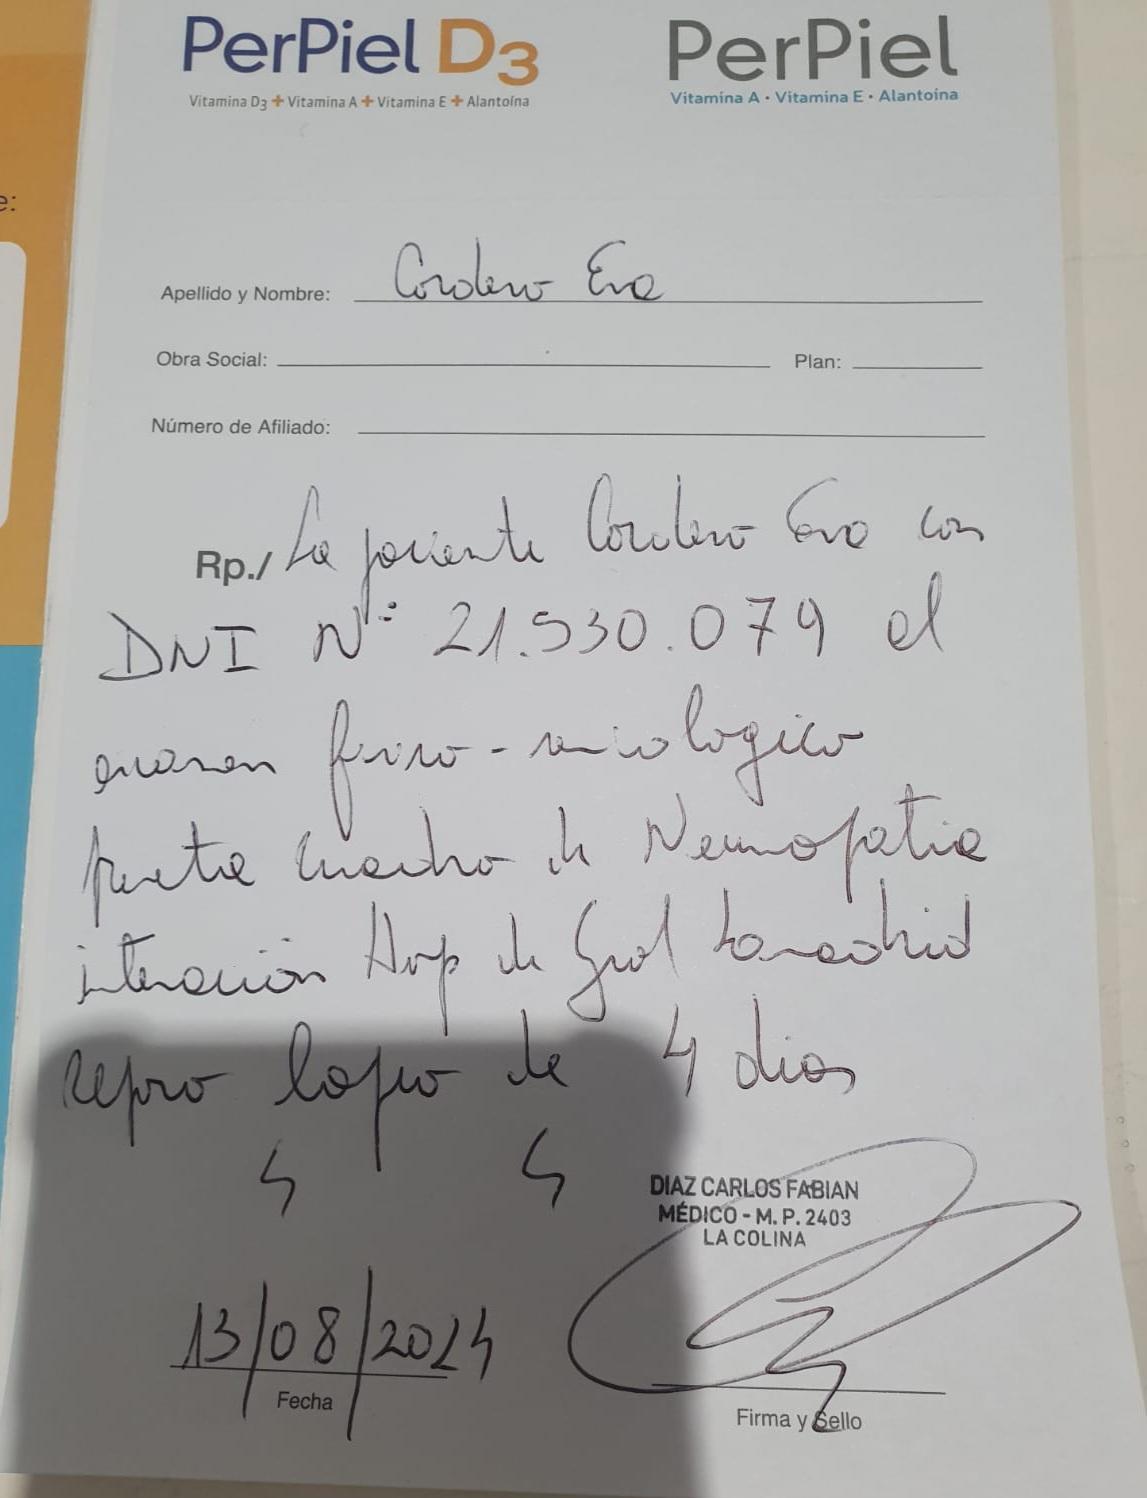 PerPiel D3
Vitamina D3 + Vitamina A + Vitamina E + Alantoína
PerPiel
Vitamina A • Vitamina E • Alantoina
e:
Apellido y Nombre: Cordero Eva
Obra Social:
Plan:
Número de Afiliado:
Rp./ La paciente Cordero Eva con
DNI Nº: 21.530.079 el
examen -micologico
cuadro de Neumopatia
internación Hosp de Gral Lamadrid
de 4 dias
DIAZ CARLOS FABIAN
MÉDICO - M. P. 2403
LA COLINA
13/08/2024
Fecha
Firma y Sello